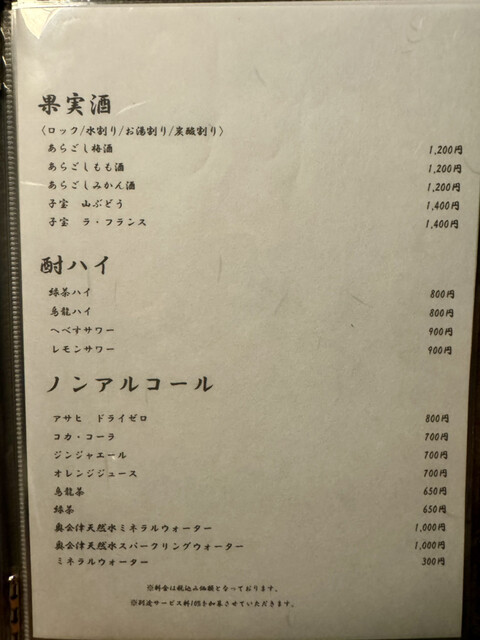 果実酒
〈ロック/水割り/お湯割り/炭酸割り〉
あらごし梅酒 1,200円
あらごしもも酒 1,200円
あらごしみかん酒 1,200円
子宝 山ぶどう 1,400円
子宝 ラ・フランス 1,400円
酎ハイ
緑茶ハイ 800円
烏龍ハイ 800円
へべすサワー 900円
レモンサワー 900円
ノンアルコール
アサヒ ドライゼロ 800円
コカ・コーラ 700円
ジンジャエール 700円
オレンジジュース 700円
烏龍茶 650円
緑茶 650円
奥会津天然水ミネラルウォーター 1,000円
奥会津天然水スパークリングウォーター 1,000円
ミネラルウォーター 300円
※料金は税込み価額となっております。
※別途サービス料10%を加算させていただきます。